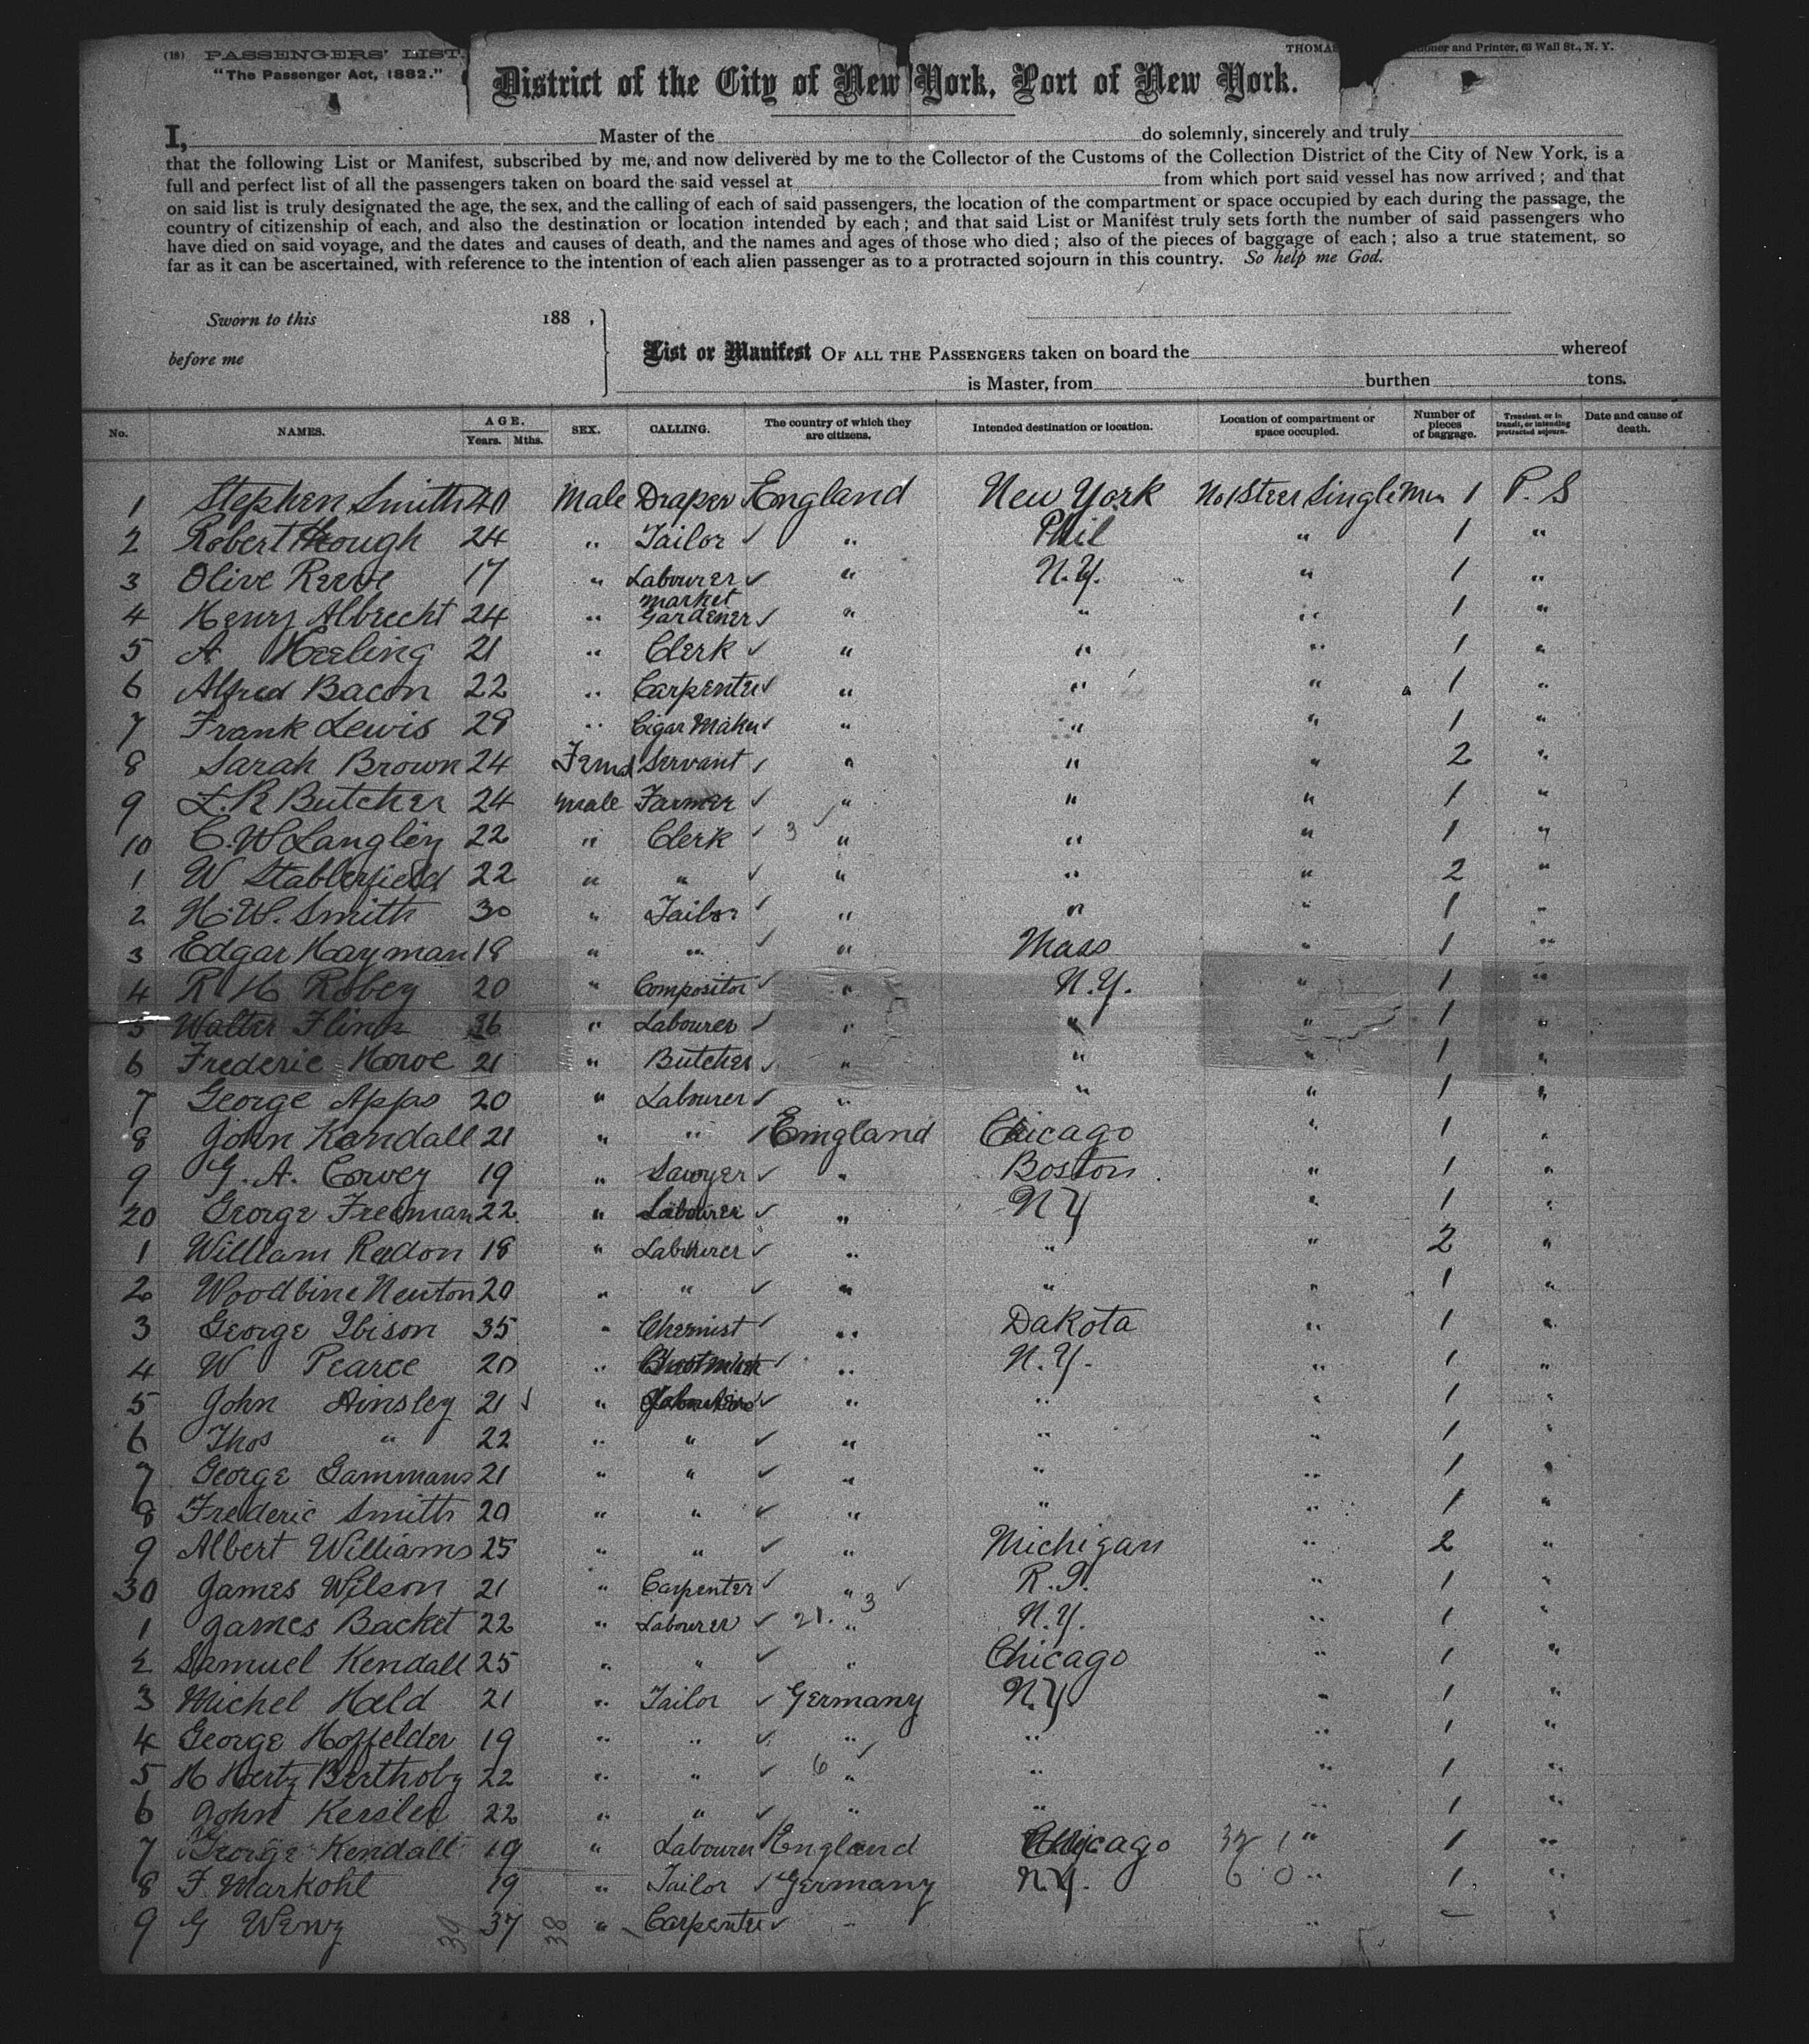 (18) PASSENGERS' LIST.
"The Passenger Act, 1882."
THOMAS and Printer, 63 Wall St., N. Y.
District of the City of New York, Port of New York.
I, Master of the do solemnly, sincerely and truly
that the following List or Manifest, subscribed by me, and now delivered by me to the Collector of the Customs of the Collection District of the City of New York, is a
full and perfect list of all the passengers taken on board the said vessel at from which port said vessel has now arrived; and that
on said list is truly designated the age, the sex, and the calling of each of said passengers, the location of the compartment or space occupied by each during the passage, the
country of citizenship of each, and also the destination or location intended by each; and that said List or Manifest truly sets forth the number of said passengers who
have died on said voyage, and the dates and causes of death, and the names and ages of those who died; also of the pieces of baggage of each; also a true statement, so
far as it can be ascertained, with reference to the intention of each alien passenger as to a protracted sojourn in this country. So help me God.
Sworn to this 188 ,
before me
List or Manifest OF ALL THE PASSENGERS taken on board the whereof
is Master, from burthen tons.
No. NAMES. AGE. Years. Mths. SEX. CALLING. The country of which they are citizens. Intended destination or location. Location of compartment or space occupied. Number of pieces of baggage. Transient, or in transit, or intending protracted sojourn. Date and cause of death.
1 Stephen Smith 40 Male Draper England New York No 1 Steer Single Men 1 P. S
2 Robert Hough 24 " Tailor " Phil " 1 "
3 Olive Reeve 17 " Labourer " N.Y. " 1 "
4 Henry Albrecht 24 " market Gardener " " " 1 "
5 A Keeling 21 " Clerk " " " 1 "
6 Alfred Bacon 22 " Carpenter " " " 1 "
7 Frank Lewis 29 " Cigar Maker " " " 1 "
8 Sarah Brown 24 Femal Servant " " " 2 "
9 L. R Butcher 24 male Farmer " " " 1 "
10 C. W Langley 22 " Clerk 3 " " " 1 "
1 W Stablerfield 22 " " " " " 2 "
2 H. W. Smith 30 " Tailor " " " 1 "
3 Edgar Hayman 18 " " " Mass " 1 "
4 R H Robey 20 " Compositor " N.Y. " 1 "
5 Walter Flink 36 " Labourer " " " 1 "
6 Frederic Howe 21 " Butcher " " " 1 "
7 George Apps 20 " Labourer " " " 1 "
8 John Kendall 21 " " England Chicago " 1 "
9 G. A. Corvey 19 " Sawyer " Boston " 1 "
20 George Freeman 22 " Labourer " N Y " 1 "
1 William Redon 18 " Labourer " " " 2 "
2 Woodbine Newton 20 " " " " " 1 "
3 George Ibison 35 " Chemist " Dakota " 1 "
4 W Pearce 20 " " N.Y. " 1 "
5 John Ainsley 21 " " " " 1 "
6 Thos " 22 " " " " " 1 "
7 George Gammans 21 " " " " " 1 "
8 Frederic Smith 20 " " " " " 1 "
9 Albert Williams 25 " " " Michigan " 2 "
30 James Wilson 21 " Carpenter " R.I. " 1 "
1 James Backet 22 " Labourer 21. 3 " N.Y. " 1 "
2 Samuel Kendall 25 " " " Chicago " 1 "
3 Michel Held 21 " Tailor Germany N.Y. " 1 "
4 George Hoffelder 19 " " " " " 1 "
5 H Hertz Berthoby 22 " " 6 " " " 1 "
6 John Kersler 22 " " " " " 1 "
7 George Kendall 19 " Labourer England Chicago 32 1 " 1 "
8 F. Markohl 19 " Tailor Germany N.Y. 6 0 " 1 "
9 G Wenz 37 " Carpenter " " – "
39 38